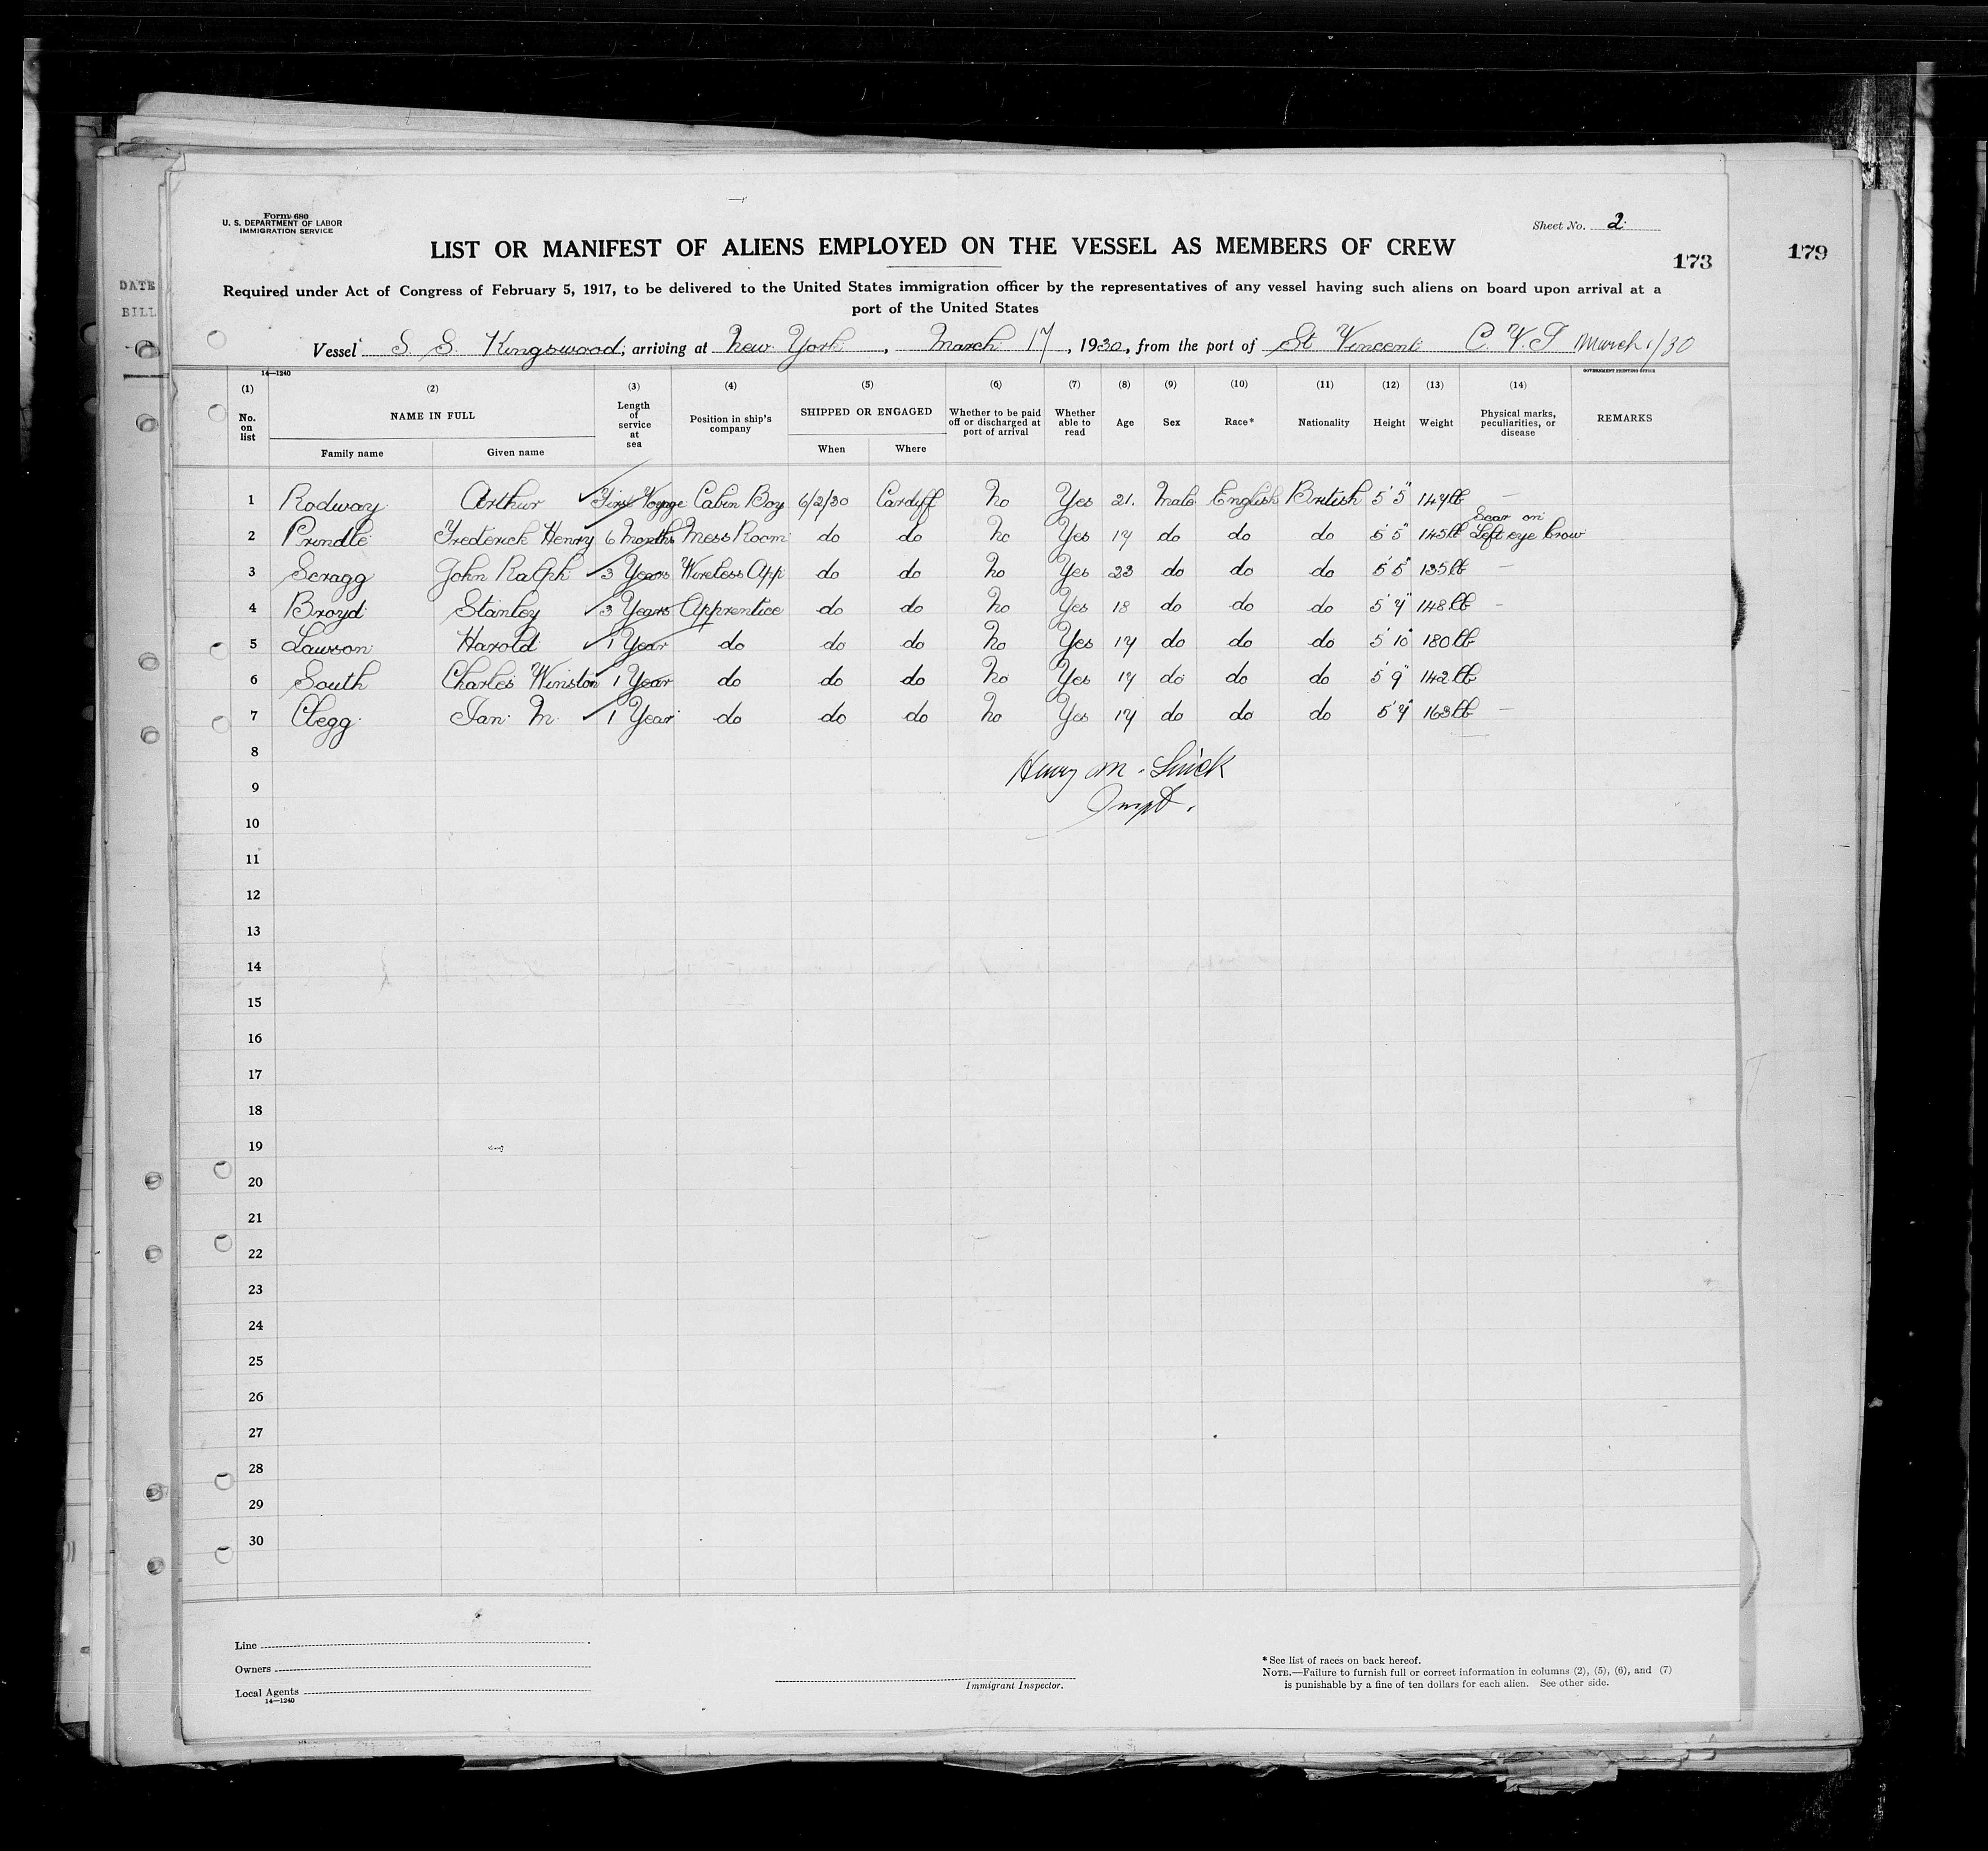 Form 680
U. S. DEPARTMENT OF LABOR
IMMIGRATION SERVICE
Sheet No. 2
LIST OR MANIFEST OF ALIENS EMPLOYED ON THE VESSEL AS MEMBERS OF CREW
173
179
DATE
BILL
Required under Act of Congress of February 5, 1917, to be delivered to the United States immigration officer by the representatives of any vessel having such aliens on board upon arrival at a
port of the United States
Vessel S. S. Kingswood, arriving at New York, March 17, 1930, from the port of St Vincent C. V. I March 1/30
14—1240
GOVERNMENT PRINTING OFFICE
(1) (2) (3) (4) (5) (6) (7) (8) (9) (10) (11) (12) (13) (14)
No. on list NAME IN FULL Length of service at sea Position in ship's company SHIPPED OR ENGAGED Whether to be paid off or discharged at port of arrival Whether able to read Age Sex Race* Nationality Height Weight Physical marks, peculiarities, or disease REMARKS
Family name Given name When Where
1 Rodway Arthur First Voyage Cabin Boy 6/2/30 Cardiff No Yes 21. Male English British 5' 5" 147lb —
2 Prindle Frederick Henry 6 Months Mess Room do do No Yes 17 do do do 5' 5" 145lb Scar on Left eye brow
3 Scragg John Ralph 3 Years Wireless Opp do do No Yes 23 do do do 5' 5" 135lb —
4 Broyd Stanley 3 Years Apprentice do do No Yes 18 do do do 5' 7" 148lb —
5 Lawson Harold 1 Year do do do No Yes 17 do do do 5' 10" 180lb
6 South Charles Winston 1 Year do do do No Yes 17 do do do 5' 9" 142lb
7 Clegg Ian M 1 Year do do do No Yes 17 do do do 5' 7" 163lb —
8
Henry M.
9
10
11
12
13
14
15
16
17
18
19
20
21
22
23
24
25
26
27
28
29
30
Line
Owners
Local Agents
14—1240
Immigrant Inspector.
*See list of races on back hereof.
NOTE.—Failure to furnish full or correct information in columns (2), (5), (6), and (7)
is punishable by a fine of ten dollars for each alien. See other side.